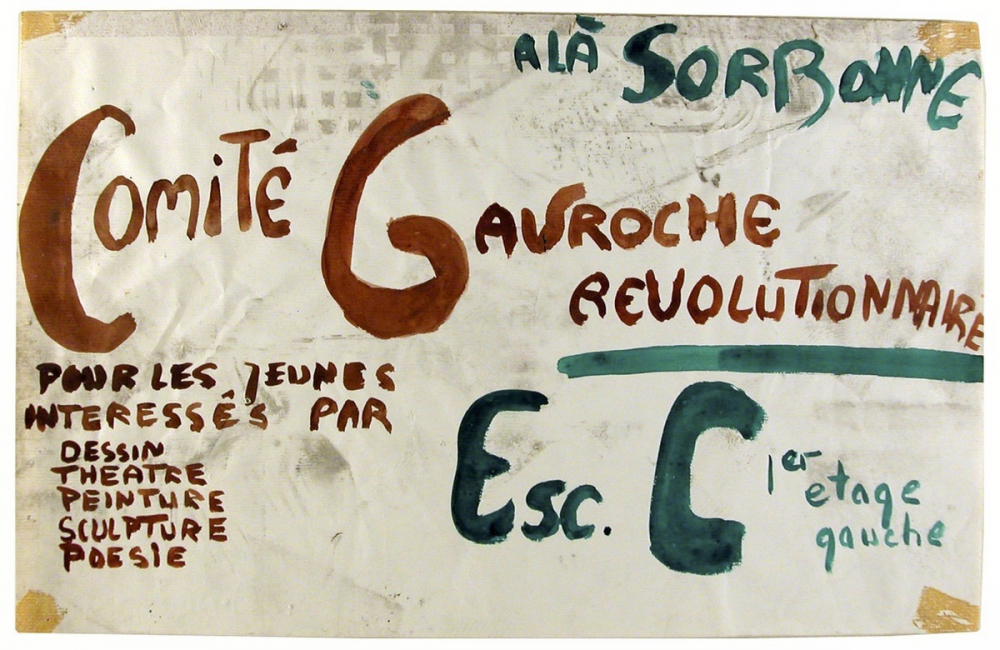 A LÀ SORBONNE
COMITÉ GAVROCHE
REVOLUTIONNAIRE
POUR LES JEUNES
INTERESSÉS PAR
DESSIN
THEATRE
PEINTURE
SCULPTURE
POESIE
ESC. C 1er etage
gauche